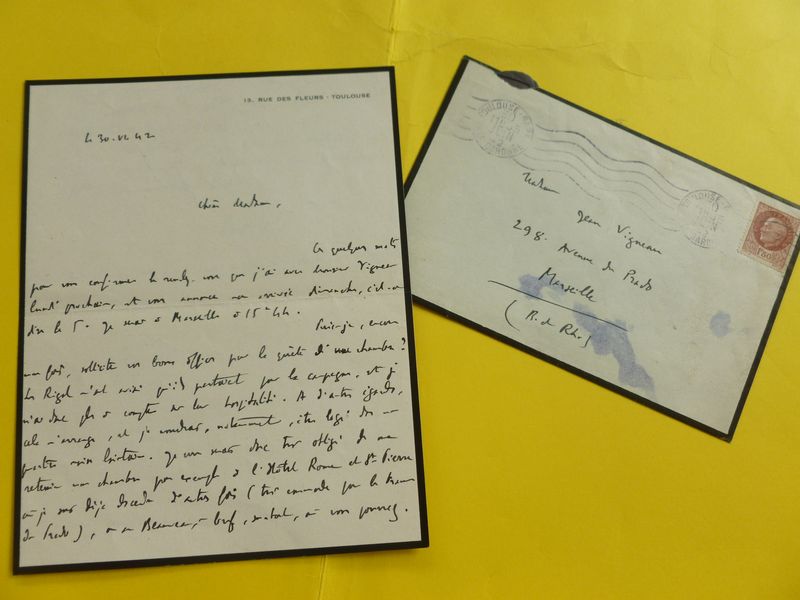 13, RUE DES FLEURS - TOULOUSE
le 30. VI. 42
Chère Madame,
Ces quelques mots
pour vous confirmer le rendez-vous que j'ai avec Monsieur Vigneau
lundi prochain, et vous annoncer mon arrivée dimanche, c'est-à-
dire le 5. Je serai à Marseille à 15h 44.
Puis-je, encore
une fois, solliciter vos bons offices pour la quête d'une chambre ?
Les Rigal m'ont avisé qu'ils partaient pour la campagne, et je
n'ai donc plus à compter sur leur hospitalité. A d'autres égards,
cela m'arrange, et je voudrais, notamment, être logé dans un
quartier moins lointain. Je vous serais donc très obligé de me
retenir une chambre par exemple à l'Hôtel Rome et St-Pierre
où je suis déjà descendu d'autres fois (très commode pour le tramway
du Prado), ou au Beauveau, - bref, où vous pourrez.
TOULOUSE
Madame
Jean Vigneau
298. Avenue du Prado
Marseille
(B. du Rh.)
1F50